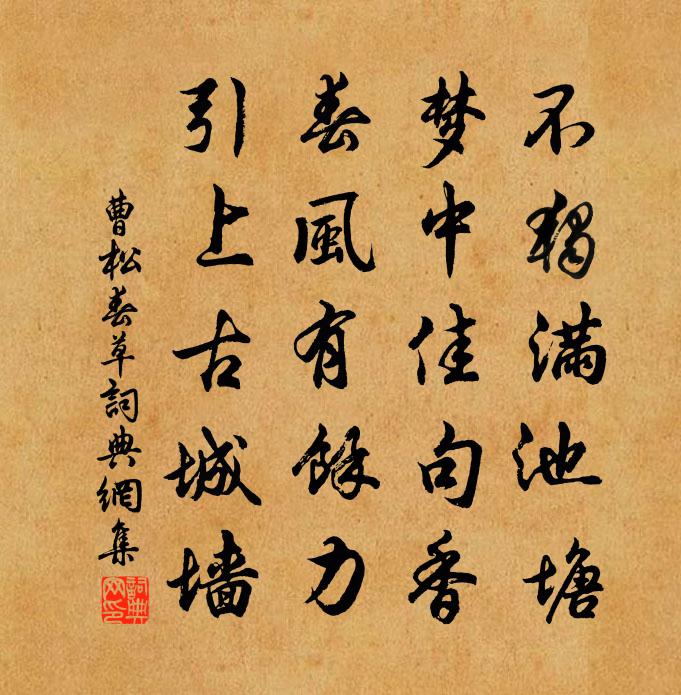 不独满池塘
梦中佳句香
春風有餘力
引上古城墙
曹松春草詞典網集
詞典网印